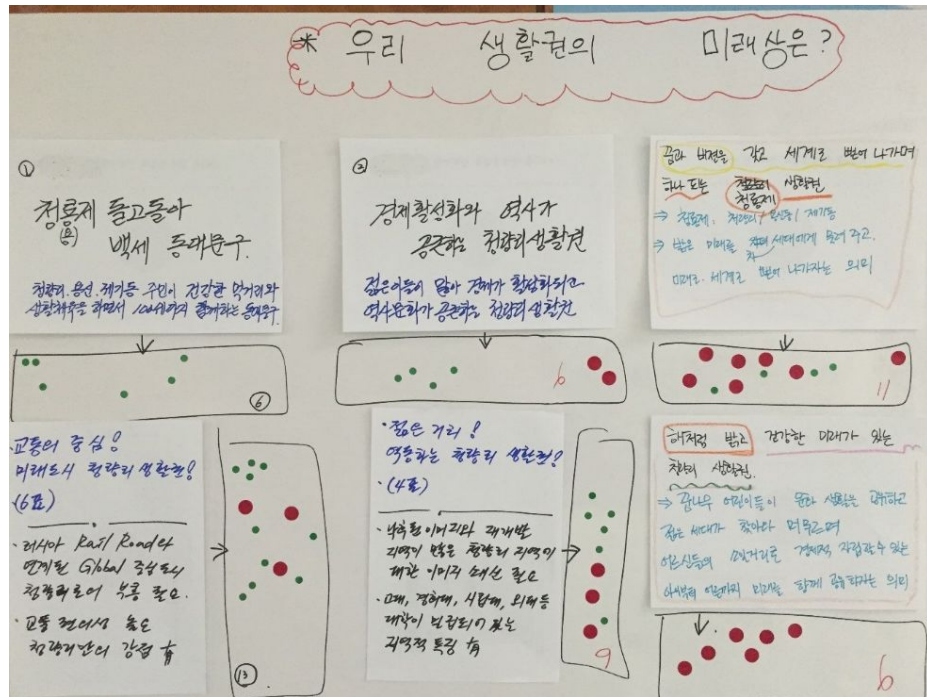 * 우리 생활권의 미래상은?
①
청룡제 돌고돌아
(용)
백세 동대문구.
청량리.용신.제기동 주민이 건강한 먹거리와
생활체육을 하면서 100세까지 함께하는 동대문구.
⑥
②
경제활성화와 역사가
공존하는 청량리생활권
젊은이들이 많아 경제가 활성화되고
역사문화가 공존하는 청량리 생활권
6
꿈과 비젼을 갖고 세계로 뻗어 나가며
하나 또는 청량리 생활권
청룡제
⇒ 청룡제: 청량리/ 용신동/ 제기동
⇒ 밝은 미래를 세대에게 보여 주고.
미래로. 세계로 뻗어 나가자는 의미
11
· 교통의 중심!
미래도시 청량리 생활권!
· (6표)
· 러시아 Rail Road와
연계된 Global 중심도시
청량리로어 부흥 필요.
· 교통 편의성 높은
청량리만의 강점 有
⑬
· 젊은 거리!
역동하는 청량리 생활권!
· (4표)
· 낙후된 이미지와 재개발
지역이 많은 청량리 지역이
대한 이미지 쇄신 필요
· 고대, 경희대, 시립대, 외대등
대학이 밀집되어 있는
지역적 특징 有
9
해처럼 밝고 건강한 미래가 있는
청량리 생활권.
⇒ 꿈나무 어린이들이 문화 생활을 하고
젊은 세대가 찾아와 머무르며
어르신들의 소일거리로 경제적 자립할 수 있는
아이부터 어른까지 미래를 함께 하자는 의미
6